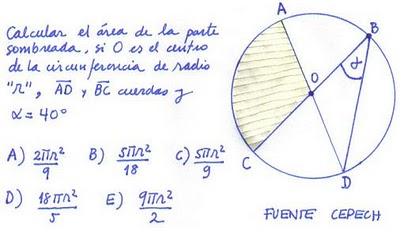 Calcular el área de la parte
sombreada, si O es el centro
de la circunferencia de radio
"r", AD y BC cuerdas y
α = 40°
A) 2πr²/9 B) 5πr²/18 C) 5πr²/9
D) 18πr²/5 E) 9πr²/2
A
B
O
α
C
D
FUENTE CEPECH